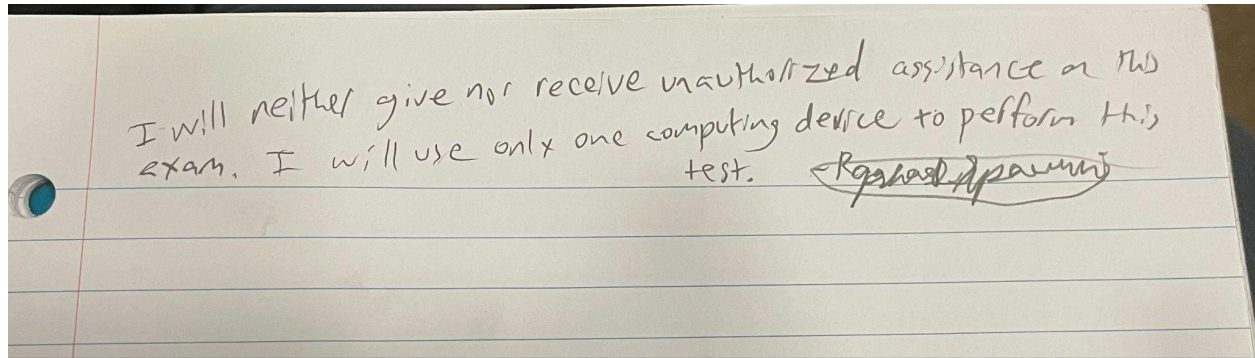 I will neither give nor receive unauthorized assistance on this
exam. I will use only one computing device to perform this
test.